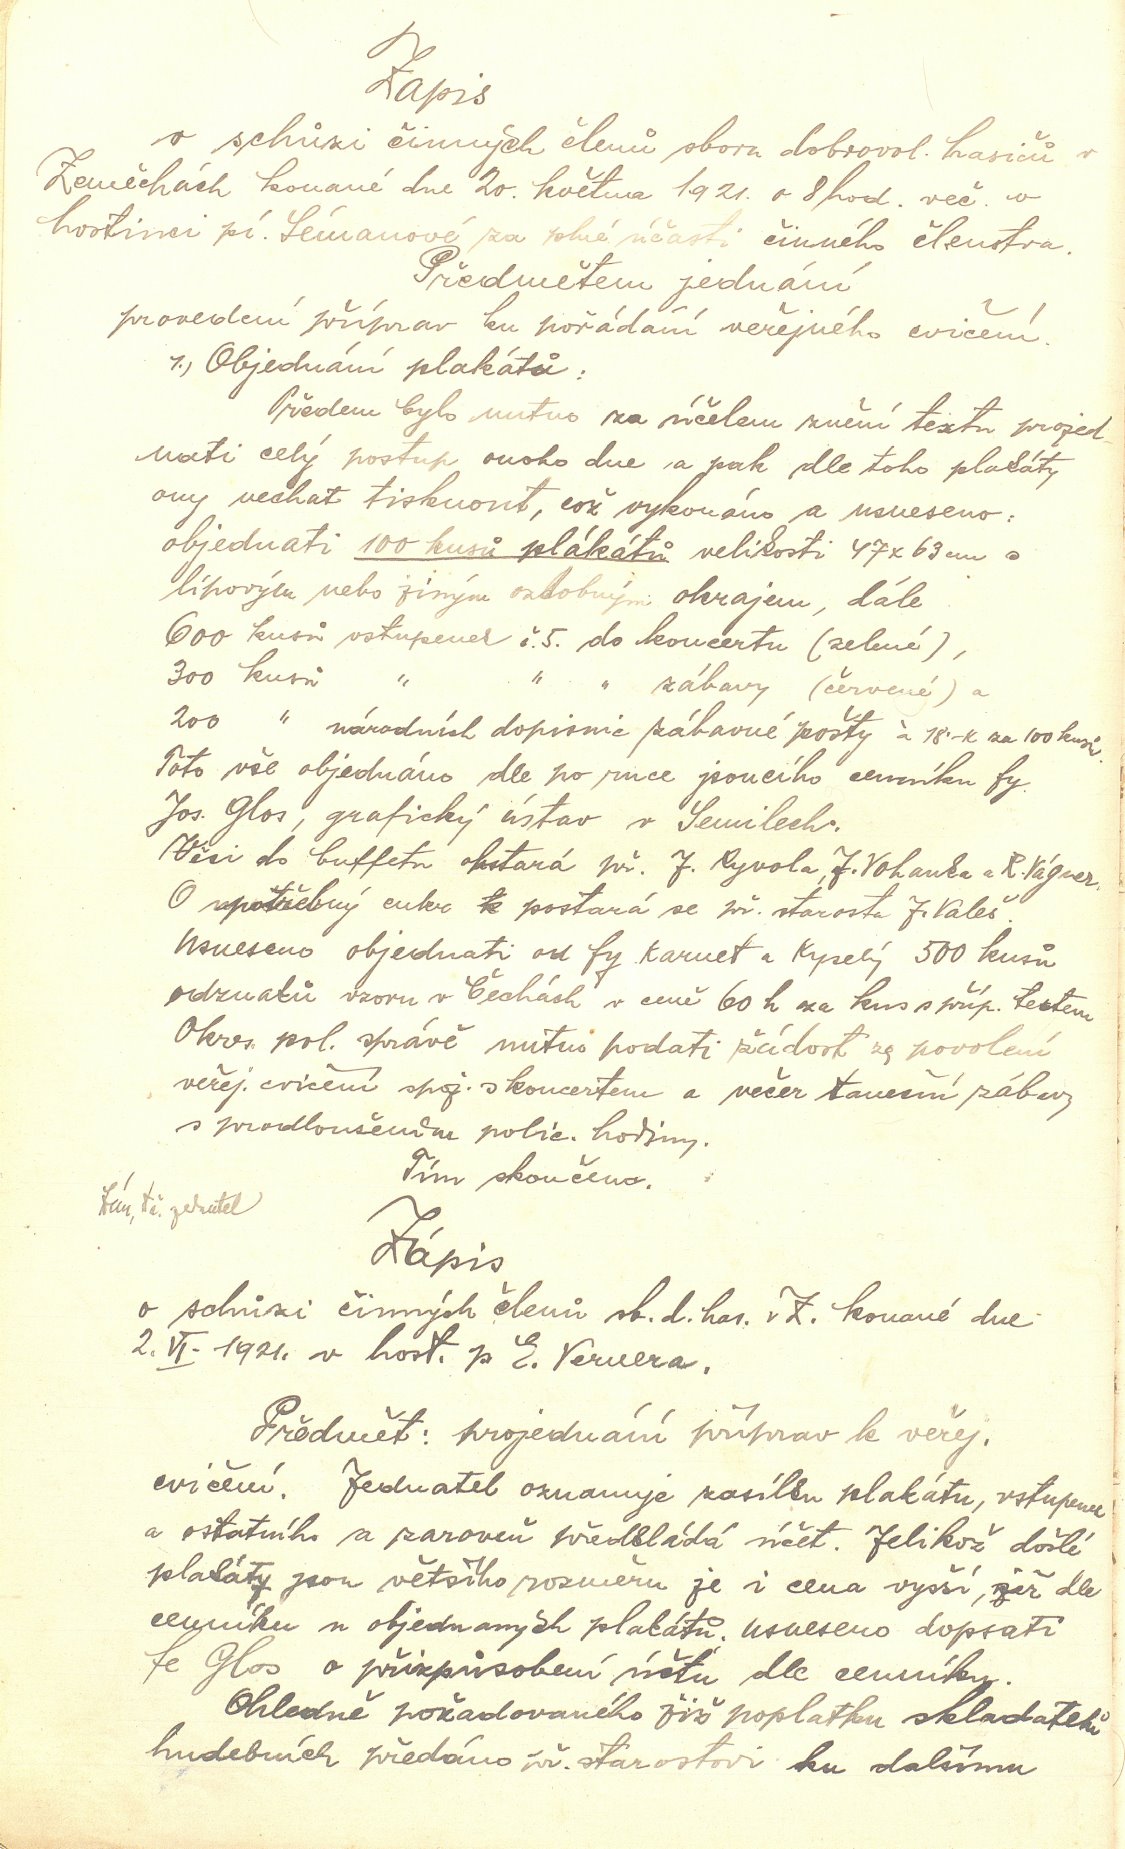 Zápis
o schůzi činných členů sboru dobrovol. hasičů v
Zeměchách konané dne 20. května 1921. o 8 hod. več. v
hostinci pí. Lémanové za plné účasti činného členstva.
Předmětem jednání
provedení příprav ku pořádání veřejného cvičení.
1.) Objednání plakátů:
Předem bylo nutno za účelem znění textu projed-
nati celý postup onoho dne a pak dle toho plakáty
ony nechat tisknout, což vykonáno a usneseno:
objednati 100 kusů plákátů velikosti 47x63 cm s
lipovým nebo jiným ozdobným okrajem, dále
600 kusů vstupenek č.5. do koncertu (zelené),
300 kusů " " " zábavy (červené) a
200 " národních dopisnic zábavné pošty à 18.-K za 100 kusů.
Toto vše objednáno dle po ruce jsoucího cenníku fy.
Jos. Glos, grafický ústav v Semilech.
Věci do buffetu obstará př. J. Ryvola, J. Vohanka a R. Vágner.
O upotřebný cukr postará se př. starosta J. Valeš.
Usneseno objednati od fy Karnet a Kyselý 500 kusů
odznaků vzoru v Čechách v ceně 60 h za kus s příp. textem
Okres. pol. správě nutno podati žádost za povolení
veřej. cvičení spoj. s koncertem a večer taneční zábavy
s prodloužením polic. hodiny.
Tím skončeno.
t.č. jednatel
Zápis
o schůzi činných členů sb. d. has. v Z. konané dne
2. VI. 1921. v host. p E. Vernera.
Předmět: projednání příprav k veřej.
cvičení. Jednatel oznamuje zasílku plakátu, vstupenek
a ostatního a zároveň předkládá účet. Jelikož došlé
plakáty jsou většího rozměru je i cena vyšší, již dle
cenníku u objednaných plakátů. usneseno dopsati
fe Glos o přizpůsobení účtu dle cenníku.
Ohledně požadovaného již poplatku skladatelů
hudebních předáno př. starostovi ku dalšímu